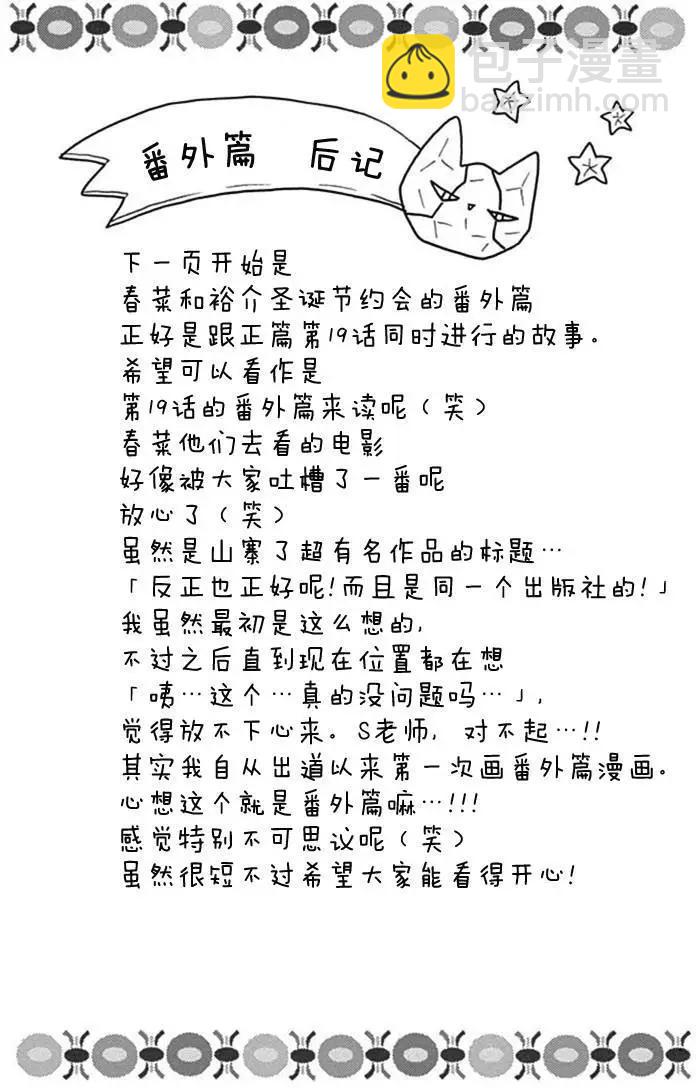 包子漫畫
baozimh.com
番外篇 后记
下一页开始是
春菜和裕介圣诞节约会的番外篇
正好是跟正篇第19话同时进行的故事。
希望可以看作是
第19话的番外篇来读呢(笑)
春菜他们去看的电影
好像被大家吐槽了一番呢
放心了(笑)
虽然是山寨了超有名作品的标题…
「反正也正好呢!而且是同一个出版社的!」
我虽然最初是这么想的,
不过之后直到现在位置都在想
「咦…这个…真的没问题吗…」,
觉得放不下心来。S老师, 对不起…!!
其实我自从出道以来第一次画番外篇漫画。
心想这个就是番外篇嘛…!!!
感觉特别不可思议呢(笑)
虽然很短不过希望大家能看得开心!